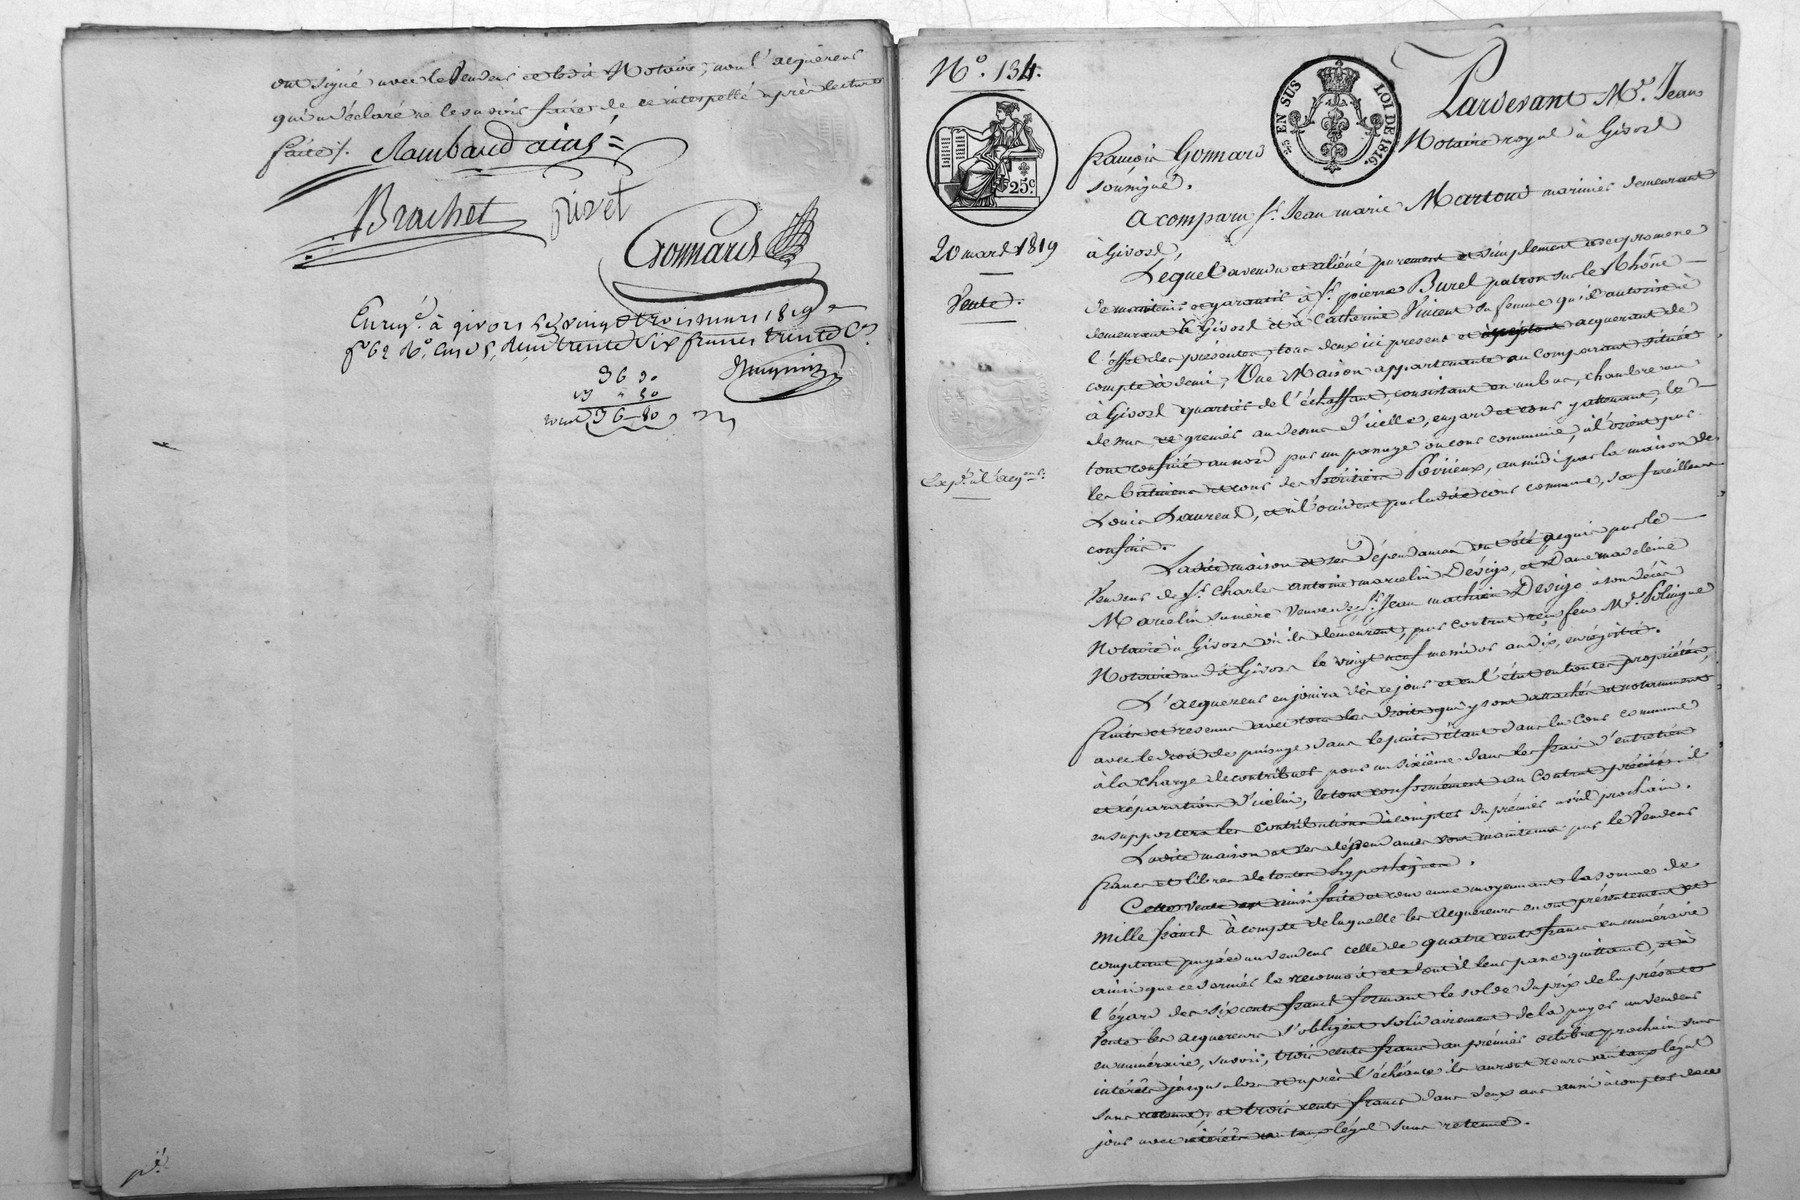 ont signé avec le Vendeur et ledit Notaire, non l'acquéreur
qui a déclaré ne le savoir faire de ce interpellé après lecture
faite /.
Rambaud ainé
Brachet
privet
Gonnard
Enreg.é à givors le vingt trois mars 1819
f.° 62 R.° Cases 5, Reçu trente six francs trente C.es
36 30
50
36-80
N.° 134.
25 EN SUS
LOI DE 1816.
25c
20 mars 1819
Vente.
Exp. à l'acq.
Pardevant M.e Jean
françois Gonnard Notaire royal à Givors
soussigné.
A comparu S.r Jean marie Martoud marinier demeurant
à Givors,
Lequel a vendu et aliéné purement et simplement avec promesse
de maintenir et garantir à S.r pierre Burel patron sur le Rhône
demeurant à Givors et à Catherine Vincent sa femme qu'il autorise à
l'effet des présentes, tous deux ici présens et acceptans acquerant de
compte à demi, Une Maison appartenante au comparant située
à Givors quartier de l'échaffaut, consistant en un bas, chambre au
dessus et grenier au dessus d'icelle, engard et cour y attenant, le
tout confiné au nord par un passage ou cour commune, à l'orient par
les bâtimens et cour des héritiers Périeux, au midi par la maison de
Louis Laurent, et à l'occident par ladite cour commune, sauf meilleurs
confins.
Ladite maison et ses dépendances ont été acquis par le
Vendeur de S.r Charles antoine marcelin Devigo, et Dame madeleine
Marcelin sa mère Veuve de S.r Jean mathieu Devigo à son décès
Notaire à Givors où ils demeurent, par contrat reçu feu M.e Polingue
Notaire audit Givors le vingt neuf messidor an dix, enrégistré.
L'acquereur en jouira dès ce jour et en l'état en toutes propriétés,
fruits et revenus avec tous les droits qui y sont attachés et notamment
avec le droit de puisage dans le puits étant dans la Cour commune
à la charge de contribuer pour un sixième dans les frais d'entretien
et réparations d'icelui, le tout conformément au Contrat précité, il
en supportera les contributions à compter du prémier avril prochain.
Ladite maison et ses dépendances sont maintenus par le Vendeur
francs et libres de toutes hypothèques.
Cette vente est ainsi faite et convenue moyennant la somme de
Mille francs à compte de laquelle les Acquereurs en ont présentement et
comptant payé au vendeur celle de quatre cents francs en numéraire
ainsi que ce dernier le reconnoit et dont il leur passe quittance, et à
l'égard des six cents francs formant le solde du prix de la présente
Vente les acquereurs s'obligent solidairement de la payer au vendeur
en numéraire, savoir, trois cents francs au prémier octobre prochain sans
intérêts jusqu'alors et après l'échéance ils auront cours au taux légal
sans retenue, et trois cents francs dans deux ans aussi à compter de ce
jour avec intérêts au taux légal sans retenue.